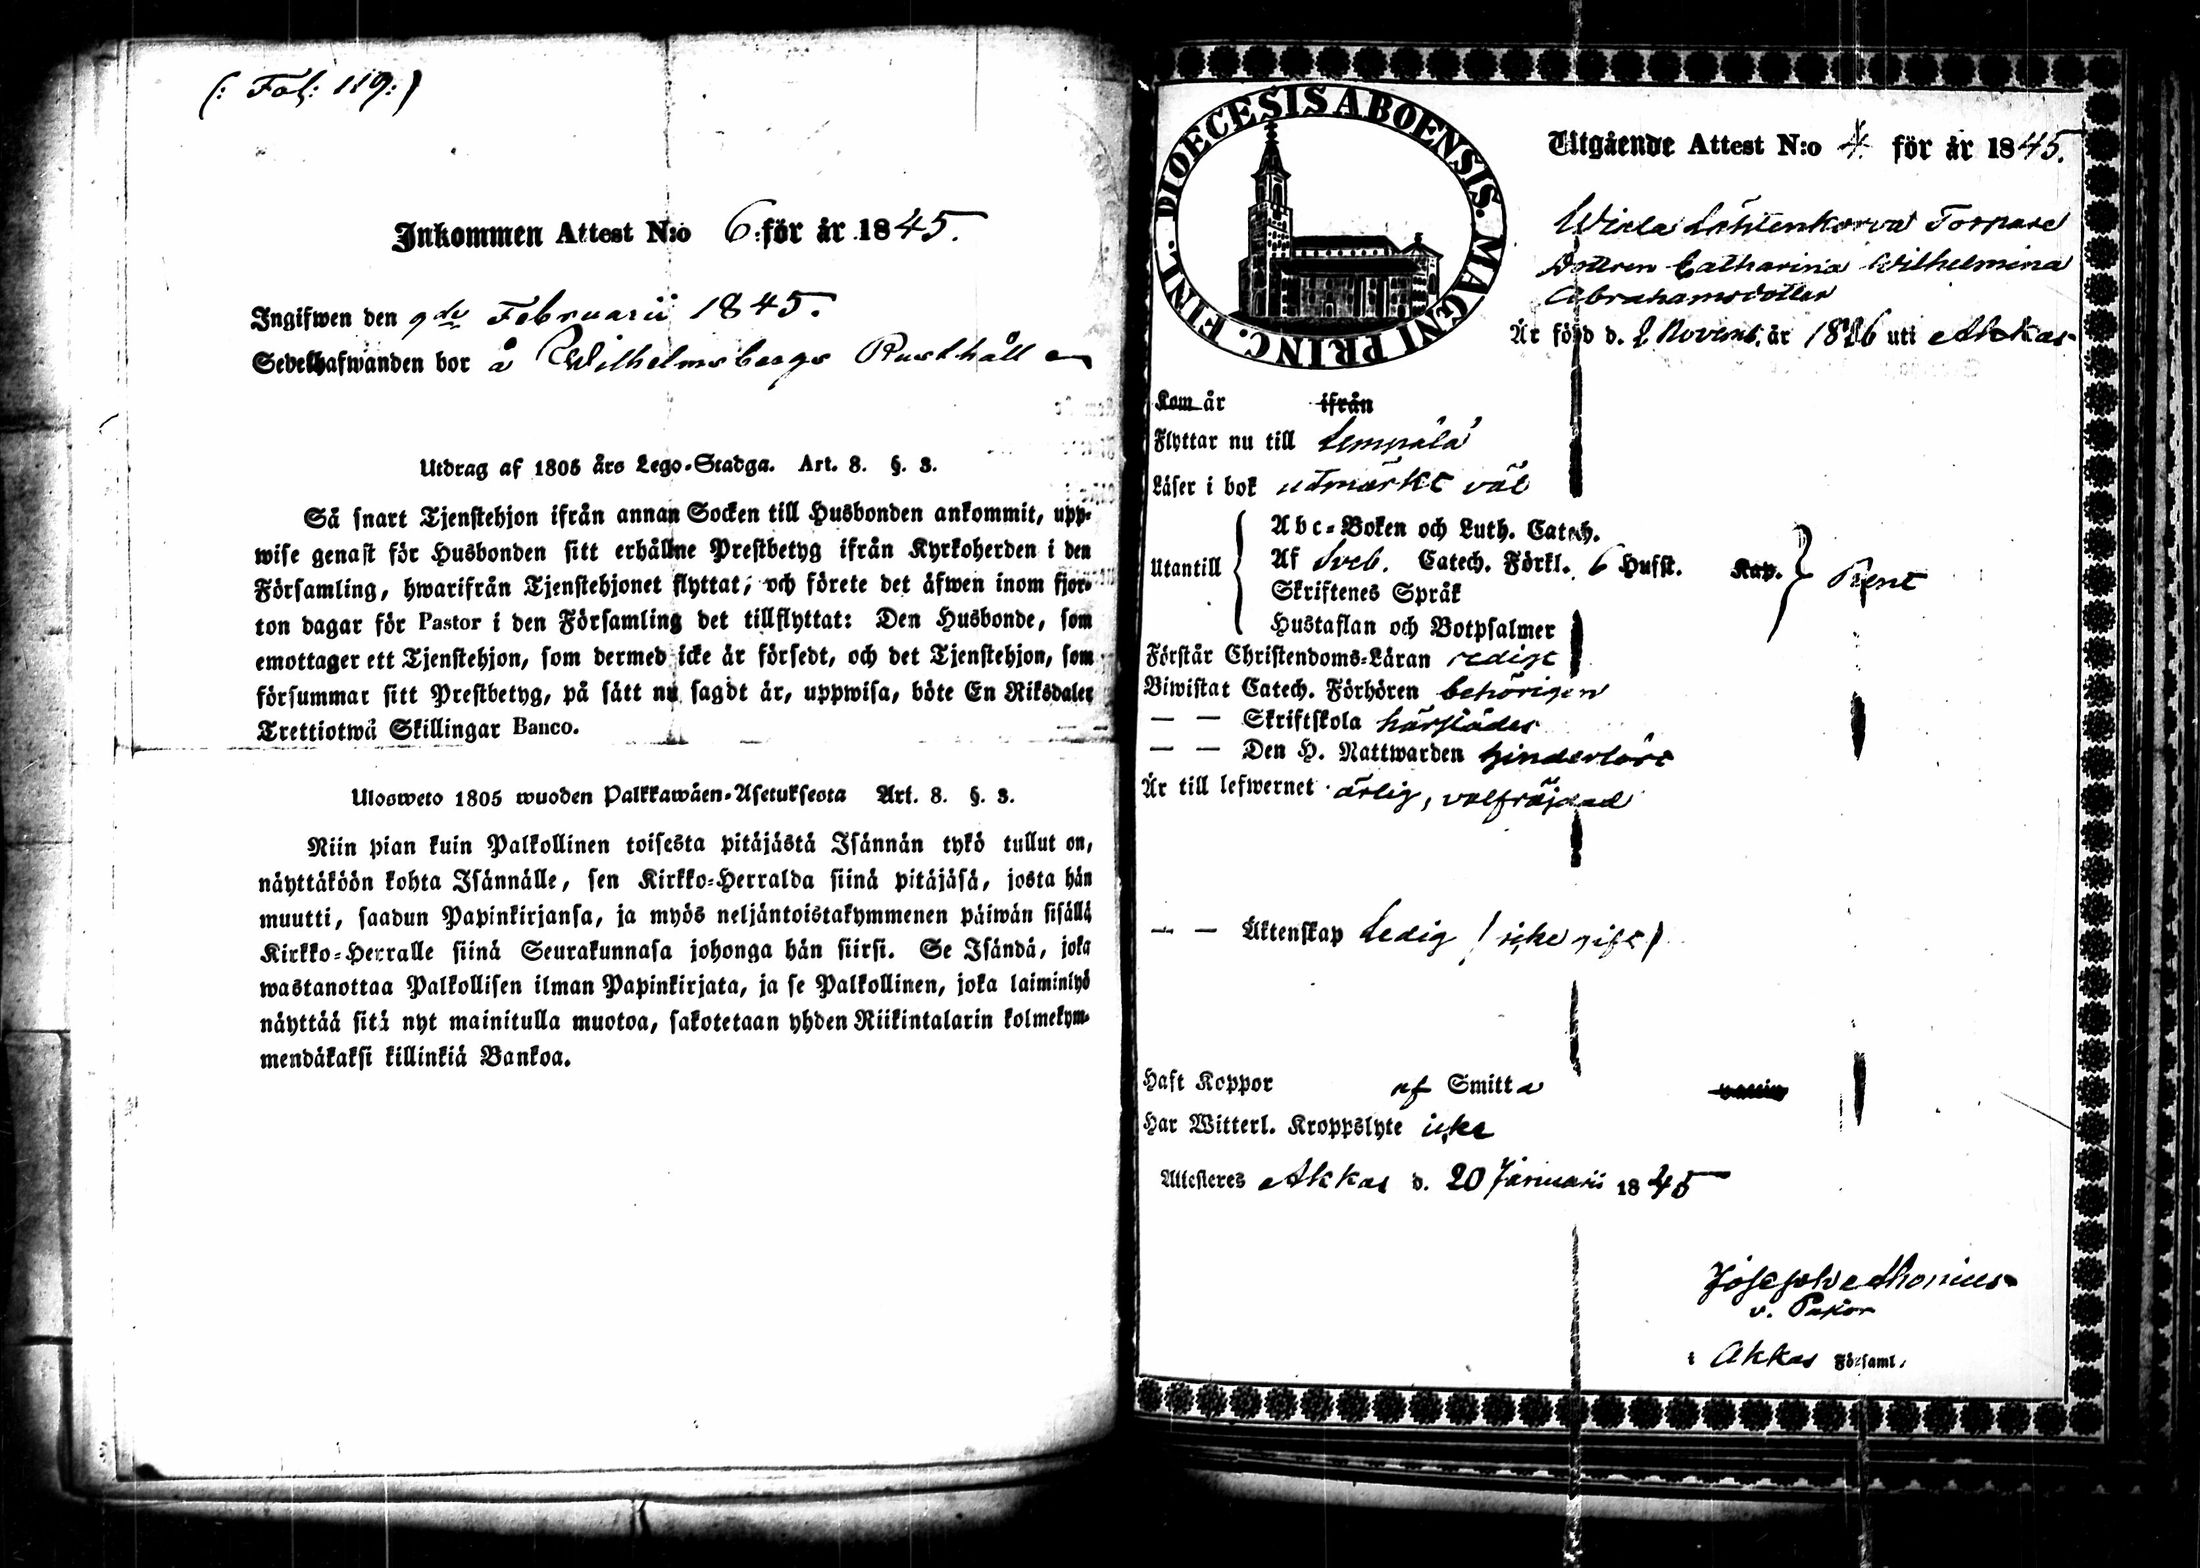 (: Fol: 119:)
Inkommen Attest N:o 6 för år 1845.
Ingifwen den 9de Februarii 1845.
Sedelhafwanden bor å Wilhelmsbergs Rusthåll
Utdrag af 1805 års Lego-Stadga. Art. 8. §. 3.
Så snart Tjenstehjon ifrån annan Socken till Husbonden ankommit, upp-
wise genast för Husbonden sitt erhållne Prestbetyg ifrån Kyrkoherden i den
Församling, hwarifrån Tjenstehjonet flyttat, och förete det äfwen inom fjor-
ton dagar för Pastor i den Församling det tillflyttat: Den Husbonde, som
emottager ett Tjenstehjon, som dermed icke är försedt, och det Tjenstehjon, som
försummar sitt Prestbetyg, på sätt nu sagdt är, uppwisa, böte En Riksdaler
Trettiotwå Skillingar Banco.
Ulosweto 1805 wuoden Palkkawäen-Asetuksesta Art. 8. §. 3.
Niin pian kuin Palkollinen toisesta pitäjästä Isännän tykö tullut on,
näyttäköön kohta Isännälle, sen Kirkko-Herralda siinä pitäjäsä, josta hän
muutti, saadun Papinkirjansa, ja myös neljäntoistakymmenen päiwän sisällä
Kirkko-Herralle siinä Seurakunnasa johonga hän siirsi. Se Isändä, joka
wastanottaa Palkollisen ilman Papinkirjata, ja se Palkollinen, joka laiminlyö
näyttää sitä nyt mainitulla muotoa, sakotetaan yhden Riikintalarin kolmekym-
mendäkaksi killinkiä Bankoa.
DIOECESIS ABOENSIS. MAGNI PRINC. FINL.
Utgående Attest N:o 4. för år 1845.
Wiala Lähtenkorva Torpare
Dottren Catharina Wilhelmina
Abrahamsdotter
Är född d. 2 Novemb. år 1826 uti Akkas
Kom år ifrån
Flyttar nu till Lempälä
Läser i bok utmärkt väl
Utantill
Abc-Boken och Luth. Catech.
Af Sveb. Catech. Förkl. 6 Hufst. Kap. Rent
Skriftenes Språk
Hustaflan och Botpsalmer
Förstår Christendoms-Läran redigt
Biwistat Catech. Förhören behörigen
— — Skriftskola härstädes
— — Den H. Nattwarden hinderlöst
Är till lefwernet ärlig, välfräjdad
— — Äktenskap Ledig (icke gift)
Haft Koppor af Smitta
Har Witterl. Kroppslyte icke
Attesteres Akkas d. 20 Januarii 1845
Joseph Monius
v. Pastor
i Akkas Församl.